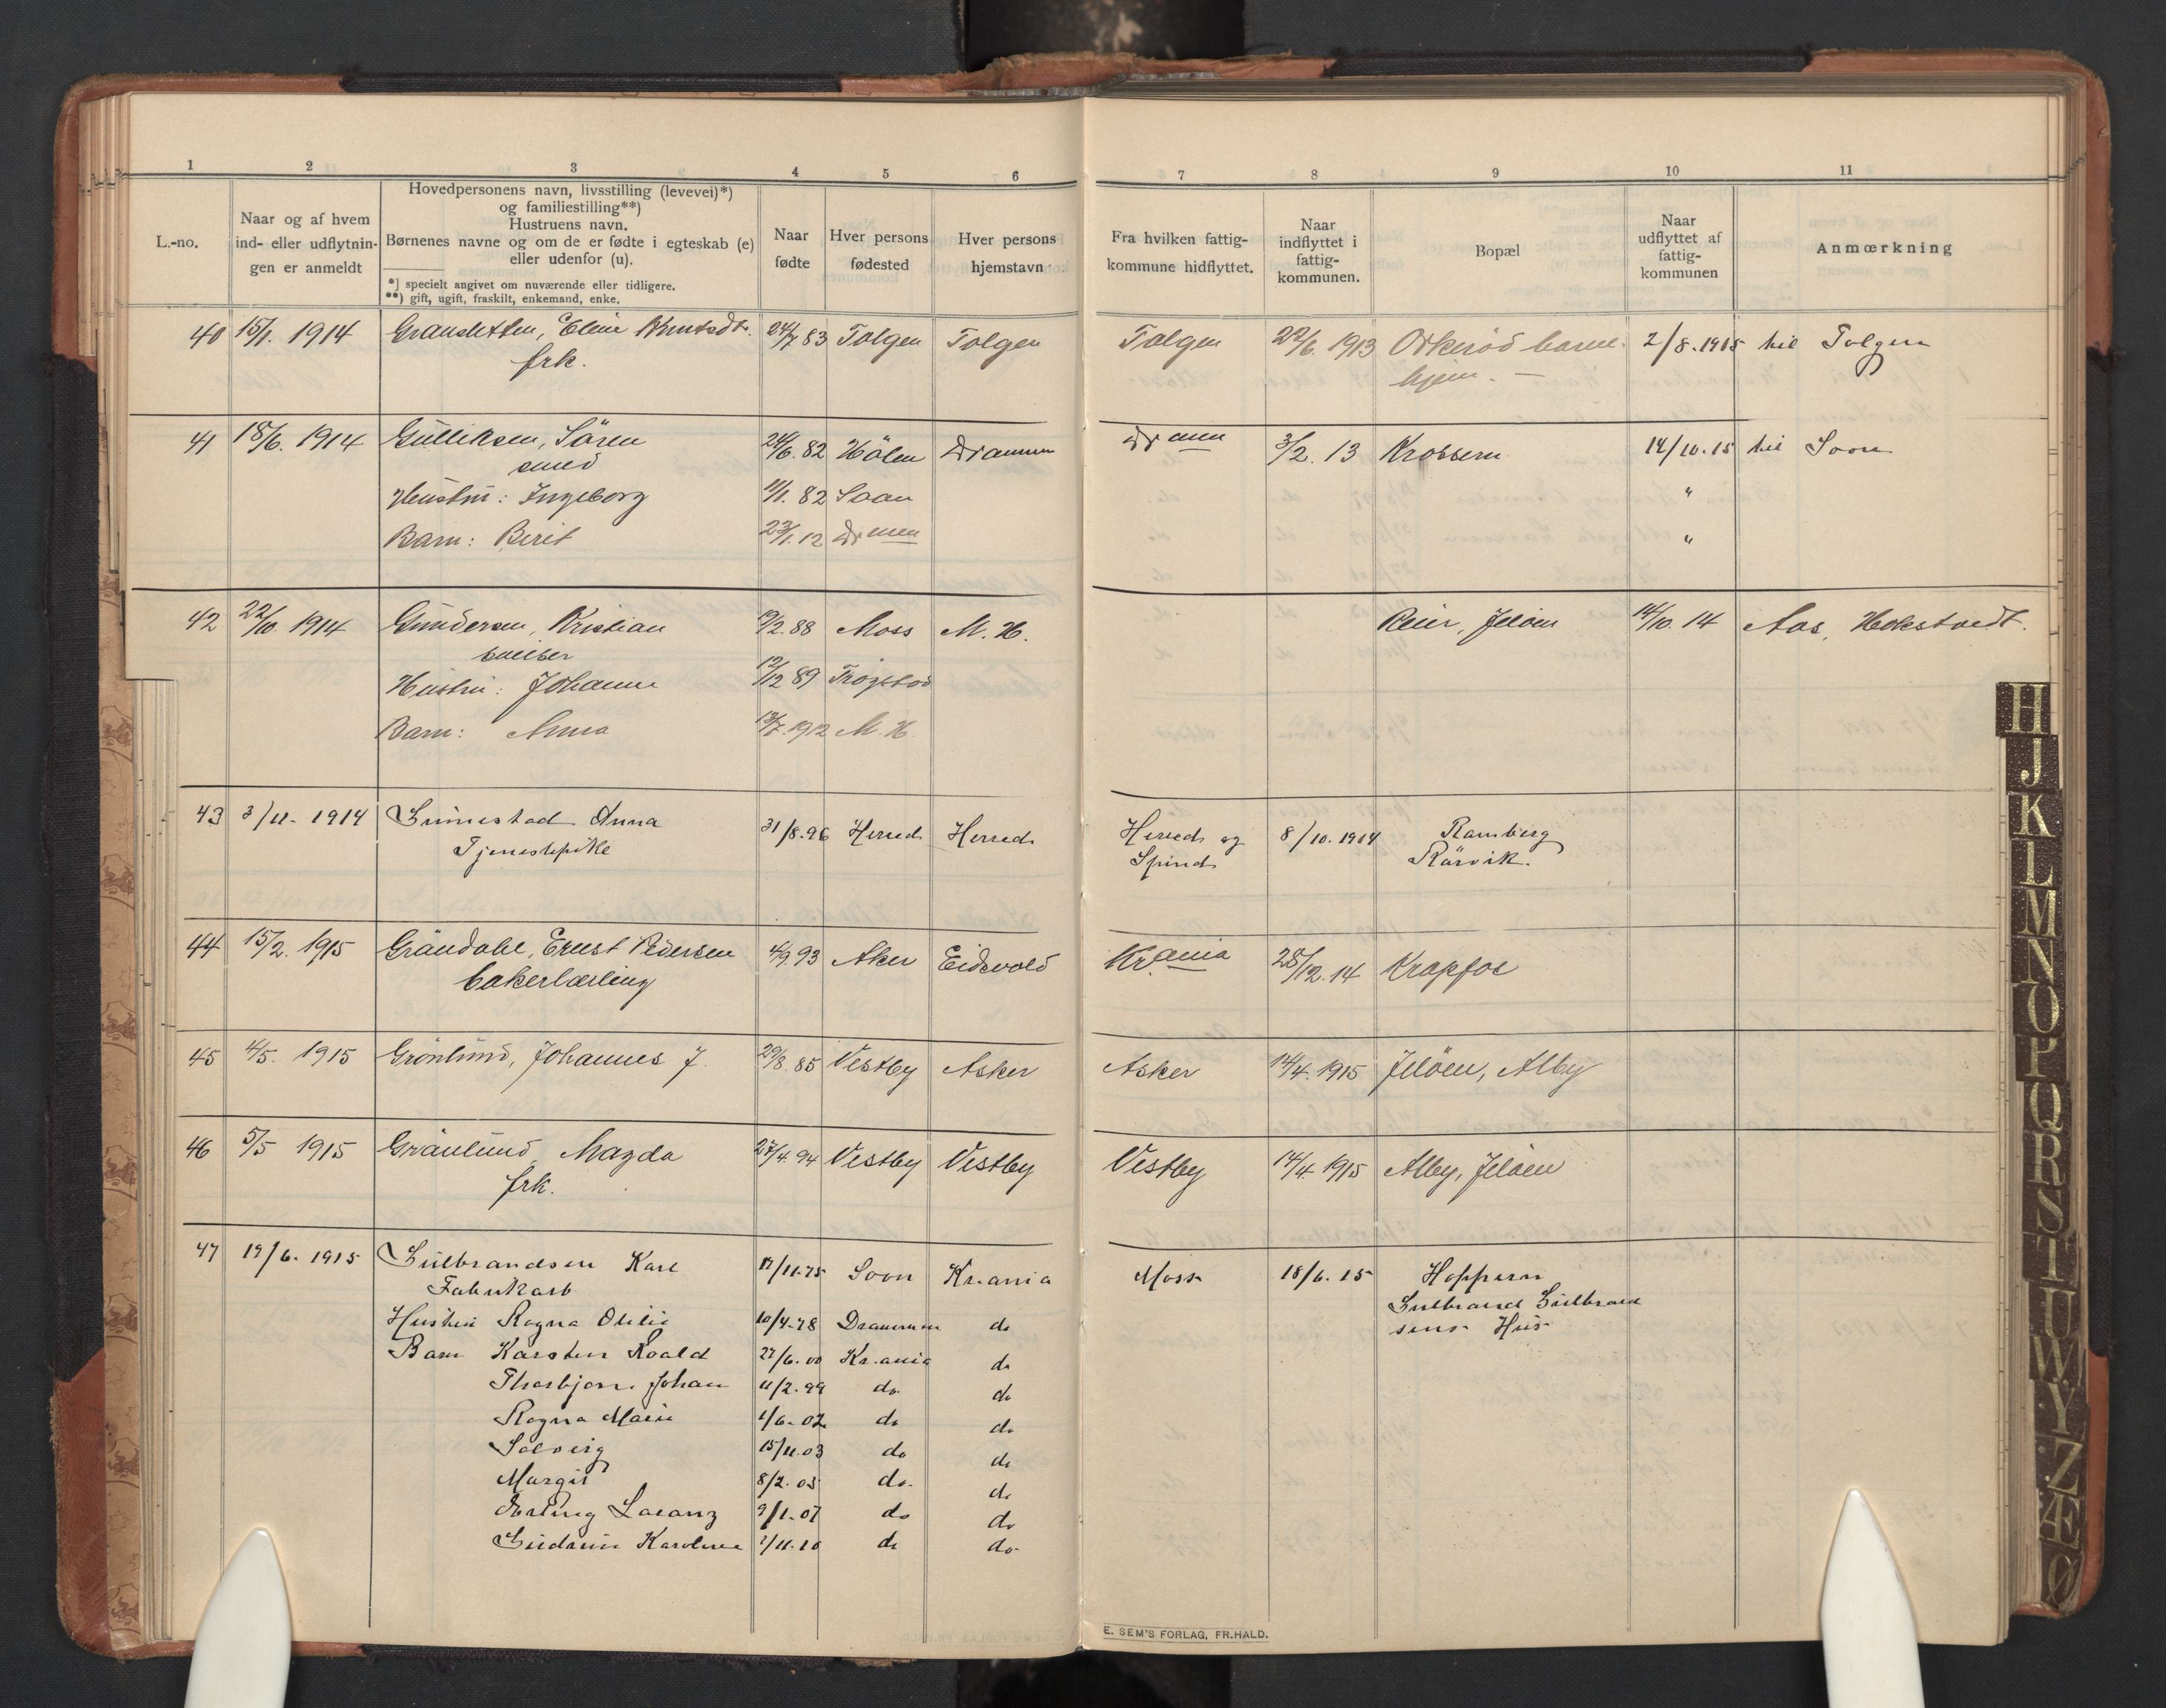 1 2 3 4 5 6 7 8 9 10 11
L.-no.
Naar og af hvem
ind- eller udflytnin-
gen er anmeldt
Hovedpersonens navn, livsstilling (levevei)*)
og familiestilling**)
Hustruens navn.
Børnenes navne og om de er fødte i egteskab (e)
eller udenfor (u).
*) specielt angivet om nuværende eller tidligere.
**) gift, ugift, fraskilt, enkemand, enke.
Naar
fødte
Hver persons
fødested
Hver persons
hjemstavn
Fra hvilken fattig-
kommune hidflyttet.
Naar
indflyttet i
fattig-
kommunen.
Bopæl
Naar
udflyttet af
fattig-
kommunen
Anmœrkning
40 15/1. 1914 Eline Knutsdt. 24/7 83 Tolgen Tolgen Tolgen 22/6. 1913 Orkerød barne- 2/8.1915 til Tolgen
frk. hjem. —
41 18/6. 1914 Gulliksen, Sören 24/6. 82 Hölen Drammen Drmen 3/2. 13 Krossern 14/10.15 til Soon
smed
Hustru: Ingeborg 11/1. 82 Soon "
Barn: Berit 23/1. 12 Drmen "
42 22/10. 1914 Gundersen, Kristian 19/2. 88 Moss M. H. Reier, Jelöen 14/10. 14 Aas, Hokstvedt.
Hustru: Johanne 12/12 89 Trögstad
Barn: Anna 13/7. 1912 M. H.
43 3/11- 1914 Grimestad Anna 31/8.96 Herred Herred Herred og 8/10. 1914 Ramberg
Tjenestepike Spind Rörvik.
44 15/2. 1915 Gröndahl, Ernst Pedersen 4/9. 93 Aker Eidsvold Kr.ania 28/12. 14 Krapfos
bakerlærling
45 4/5. 1915 Grönlund, Johannes J. 29/8. 85 Vestby Asker Asker 14/4. 1915 Jelöen, Alby
46 5/5 1915 Grönlund, Magda 27/4. 94 Vestby Vestby Vestby 14/4. 1915 Alby, Jelöen
frk.
47 19/6. 1915 Gulbrandsen Karl 17/11-75 Soon Kr.ania Moss 18/6. 15 Hoppern
Fabrikarb Gulbrand Gulbrand
Hustru Ragna Otilie 10/4-78 Drammen do sens Hus
Barn Karsten Roald 27/6. 00 Kr.ania do
Thorbjørn Johan 11/2. 99 do. do
Ragna Marie 1/6. 02 do do
Solveig 15/11.03 do do
Margit 8/2. 05 do. do
Erling 9/1. 07 do do
Gudrun Karoline 1/11.10 do do-
E. SEM'S FORLAG, FR.HALD.
H
J
K
L
M
N
O
P
Q
R
S
T
U
W
Y
Z
Æ
Ø